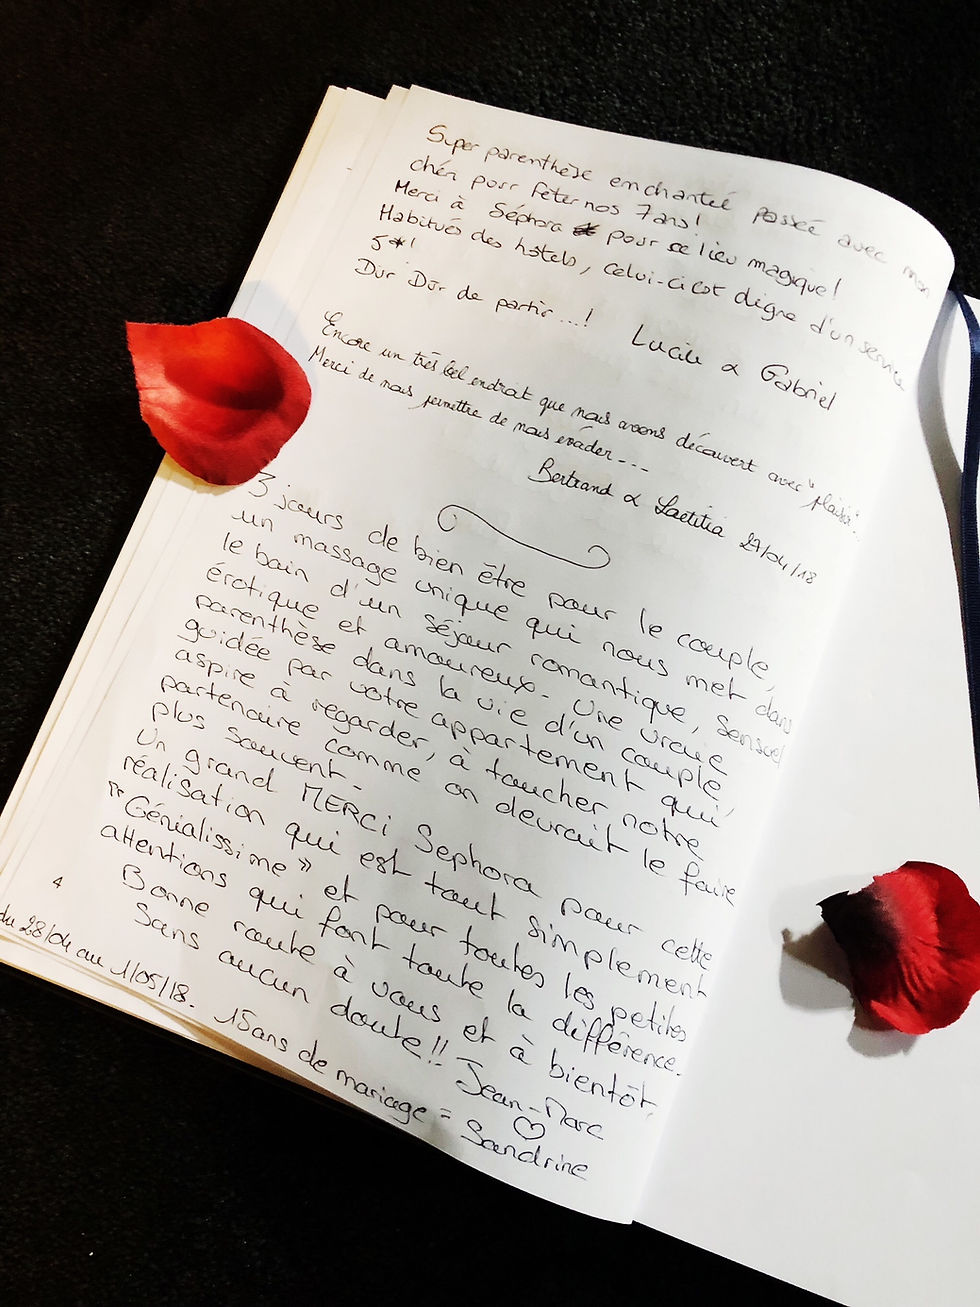 Super parenthèse enchanteé passeé avec mon
chéri pour fêter nos 7 ans!
Merci à Séphora pour ce lieu magique!
Habitués des hôtels, celui-ci est digne d'un service
5*!
Dur Dur de partir...!
Lucile & Gabriel
Encore un très bel endroit que nous avons découvert avec "plaisir".
Merci de nous permettre de nous évader---
Bertrand & Laetitia 27/04/18
3 jours de bien être pour le couple,
un massage unique qui nous met dans
le bain d'un séjour romantique, sensuel
érotique et amoureux. Une vraie
parenthèse dans la vie d'un couple
guidée par votre appartement qui,
aspire à regarder, à toucher notre
partenaire comme on devrait le faire
plus souvent.
Un grand MERCi Sephora pour cette
réalisation qui est tout simplement
"Génialissime" et pour toutes les petites
attentions qui font toute la différence.
Bonne route à vous et à bientôt,
Sans aucun doute!!
Jean-Marc
♡
Sandrine
4
du 28/04 au 1/05/18. 15 ans de mariage =